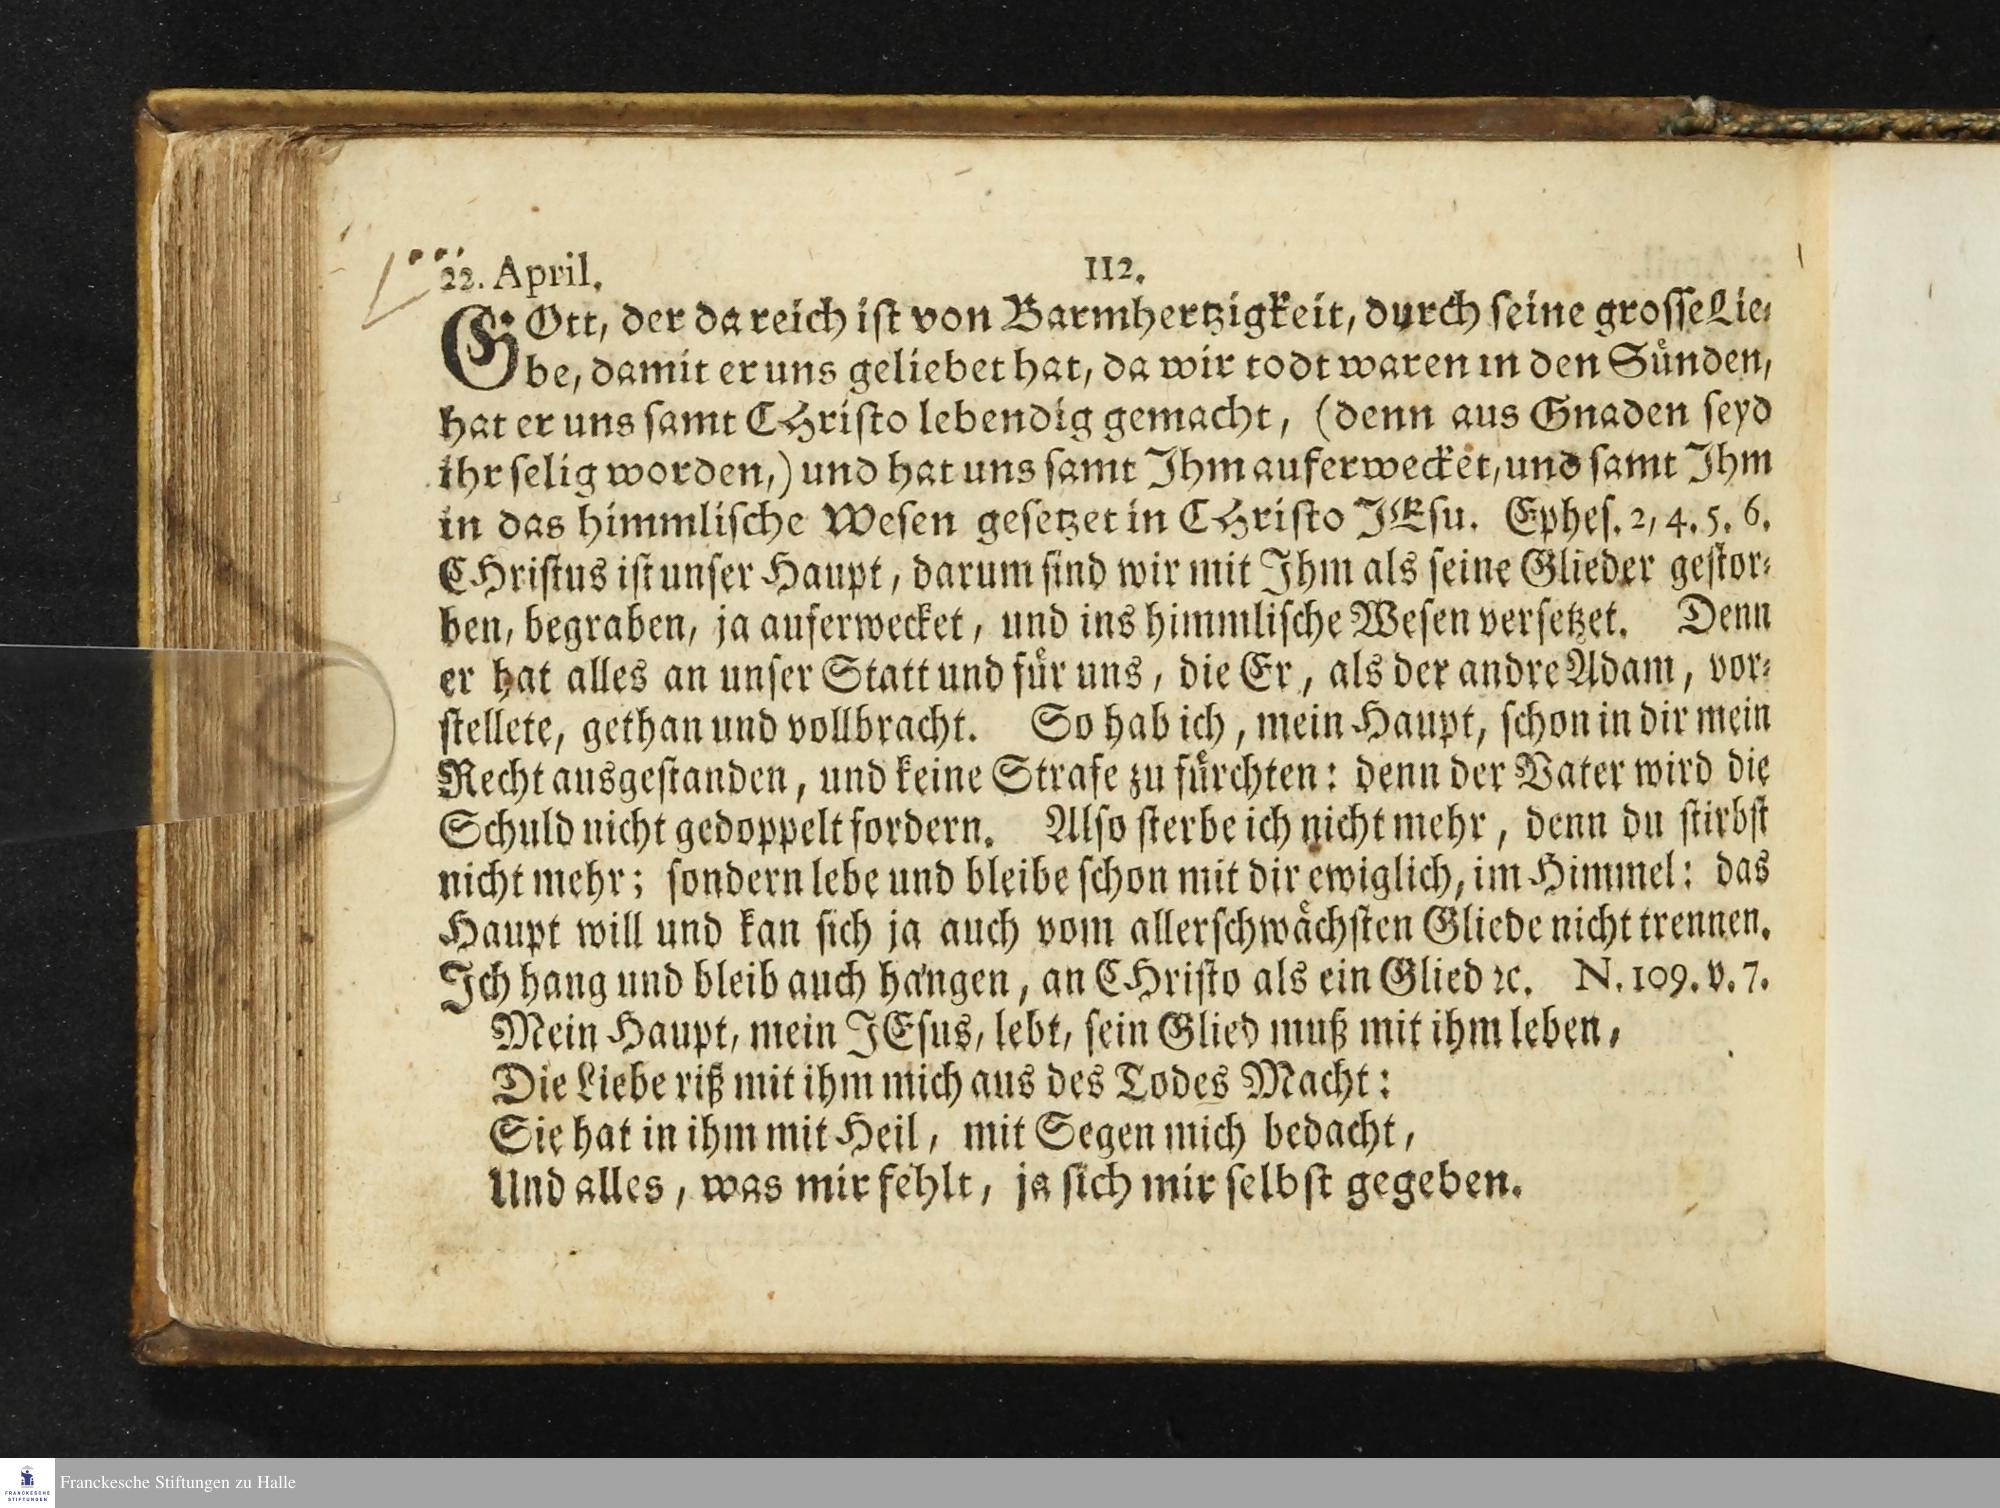 22. April. 112.
GOtt, der da reich ist von Barmhertzigkeit, durch seine grosse Lie-
be, damit er uns geliebet hat, da wir todt waren in den Sünden,
hat er uns samt CHristo lebendig gemacht, (denn aus Gnaden seyd
ihr selig worden,) und hat uns samt Ihm auferwecket, und samt Ihm
in das himmlische Wesen gesetzet in CHristo JEsu. Ephes. 2, 4. 5. 6.
CHristus ist unser Haupt, darum sind wir mit Ihm als seine Glieder gestor-
ben, begraben, ja auferwecket, und ins himmlische Wesen versetzet. Denn
er hat alles an unser Statt und für uns, die Er, als der andre Adam, vor-
stellete, gethan und vollbracht. So hab ich, mein Haupt, schon in dir mein
Recht ausgestanden, und keine Strafe zu fürchten: denn der Vater wird die
Schuld nicht gedoppelt fordern. Also sterbe ich nicht mehr, denn du stirbst
nicht mehr; sondern lebe und bleibe schon mit dir ewiglich, im Himmel: das
Haupt will und kan sich ja auch vom allerschwächsten Gliede nicht trennen.
Ich hang und bleib auch hangen, an CHristo als ein Glied ꝛc. N. 109. v. 7.
Mein Haupt, mein JEsus, lebt, sein Glied muß mit ihm leben,
Die Liebe riß mit ihm mich aus des Todes Macht:
Sie hat in ihm mit Heil, mit Segen mich bedacht,
Und alles, was mir fehlt, ja sich mir selbst gegeben.
FRANCKESCHE
STIFTUNGEN
Franckesche Stiftungen zu Halle